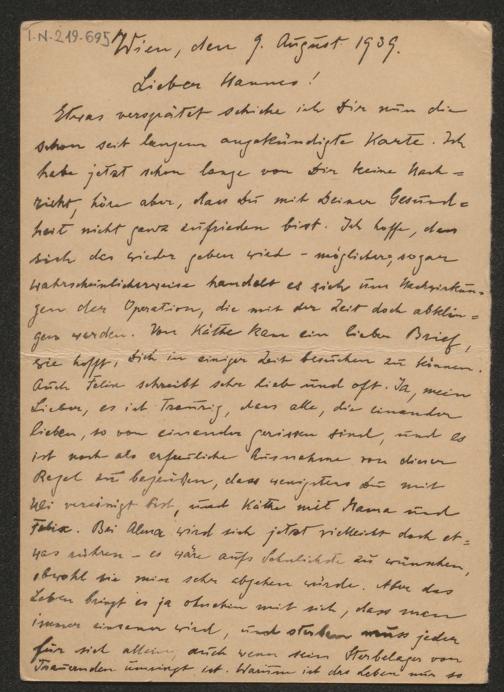 I.N. 219.695
Wien, den 9. August 1939.
Lieber Hannes!
Etwas verspätet schicke ich Dir nun die
schon seit langem angekündigte Karte. Ich
habe jetzt schon lange von Dir keine Nach=
richt, höre aber, dass Du mit Deiner Gesund=
heit nicht ganz zufrieden bist. Ich hoffe, dass
sich das wieder geben wird - möglicher, sogar
wahrscheinlicherweise handelt es sich um Nachwirkun-
gen der Operation, die mit der Zeit doch abklin-
gen werden. Von Käthe kam ein lieber Brief,
sie hofft, Dich in einiger Zeit besuchen zu können.
Auch Felix schreibt sehr lieb und oft. Ja, mein
Lieber, es ist traurig, dass alle, die einander
lieben, so von einander gerissen sind, und es
ist noch als erfreuliche Ausnahme von dieser
Regel zu begrüßen, dass wenigstens Du mit
vereinigt bist, und Käthe mit Mama und
Felix. Bei Alma wird sich jetzt vielleicht doch et-
was rühren - es wäre aufs Sehnlichste zu wünschen,
obwohl sie mir sehr abgehen würde. Aber das
Leben bringt es ja ohnehin mit sich, dass man
immer einsamer wird, und sterben muss jeder
für sich allein, auch wenn sein Sterbelager von
Trauernden umringt ist. Warum ist das Leben nur so